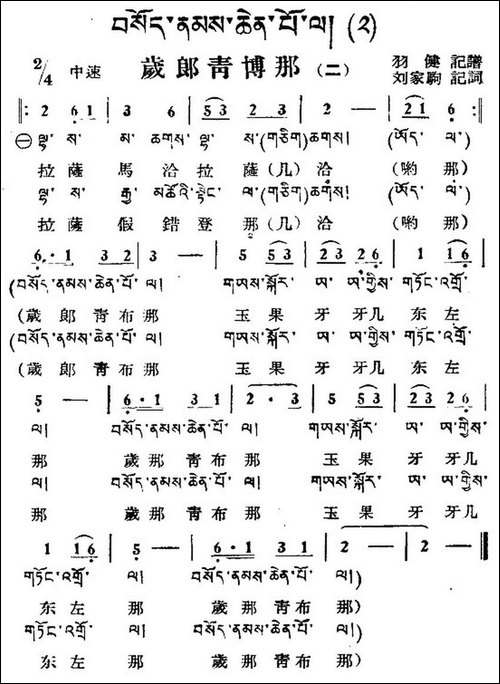 བསོད་ནམས་ཆེན་པོ་ལ། (༢)
2/4 中速 歲郎青博那 (二) 羽健記譜
刘家駒記詞
‖: 2 6 1 | 3 6 | 5 3 2 3 | 2 — | 2 1 6 |
㊀ ལྷ་ས་མ་ཆགས་ལྷ་ས་(གཅིག)ཆགས། (ཡོད་ལ་)
拉薩馬洽拉薩(几)洽 (喲那)
ལྷ་ས་རྒྱ་མཚོའི་སྟེང་ལ་(གཅིག)ཆགས། (ཡོད་ལ་)
拉薩假錯登那(几)洽 (喲那)
6 · 1 3 2 | 3 — | 5 5 3 | 2 3 2 6 | 1 1 6 |
(བསོད་ནམས་ཆེན་པོ་ལ། གཡས་སྐོར་ཨ་ཨ་གྱིས་གཏོང་འགྲོ་
(歲郎青布那 玉果牙牙几东左
(བསོད་ནམས་ཆེན་པོ་ལ། གཡས་སྐོར་ཨ་ཨ་གྱིས་གཏོང་འགྲོ་
(歲郎青布那 玉果牙牙几东左
5 — | 6 · 1 3 1 | 2 · 3 | 5 5 3 | 2 3 2 6 |
ལ། བསོད་ནམས་ཆེན་པོ་ལ། གཡས་སྐོར་ཨ་ཨ་གྱིས་
那 歲那青布那 玉果牙牙几
ལ། བསོད་ནམས་ཆེན་པོ་ལ། གཡས་སྐོར་ཨ་ཨ་གྱིས་
那 歲那青布那 玉果牙牙几
1 1 6 | 5 — | 6 · 1 3 1 | 2 — | 2 — :‖
གཏོང་འགྲོ་ལ། བསོད་ནམས་ཆེན་པོ་ལ།)
东左那 歲那青布那)
གཏོང་འགྲོ་ལ། བསོད་ནམས་ཆེན་པོ་ལ།)
东左那 歲那青布那)